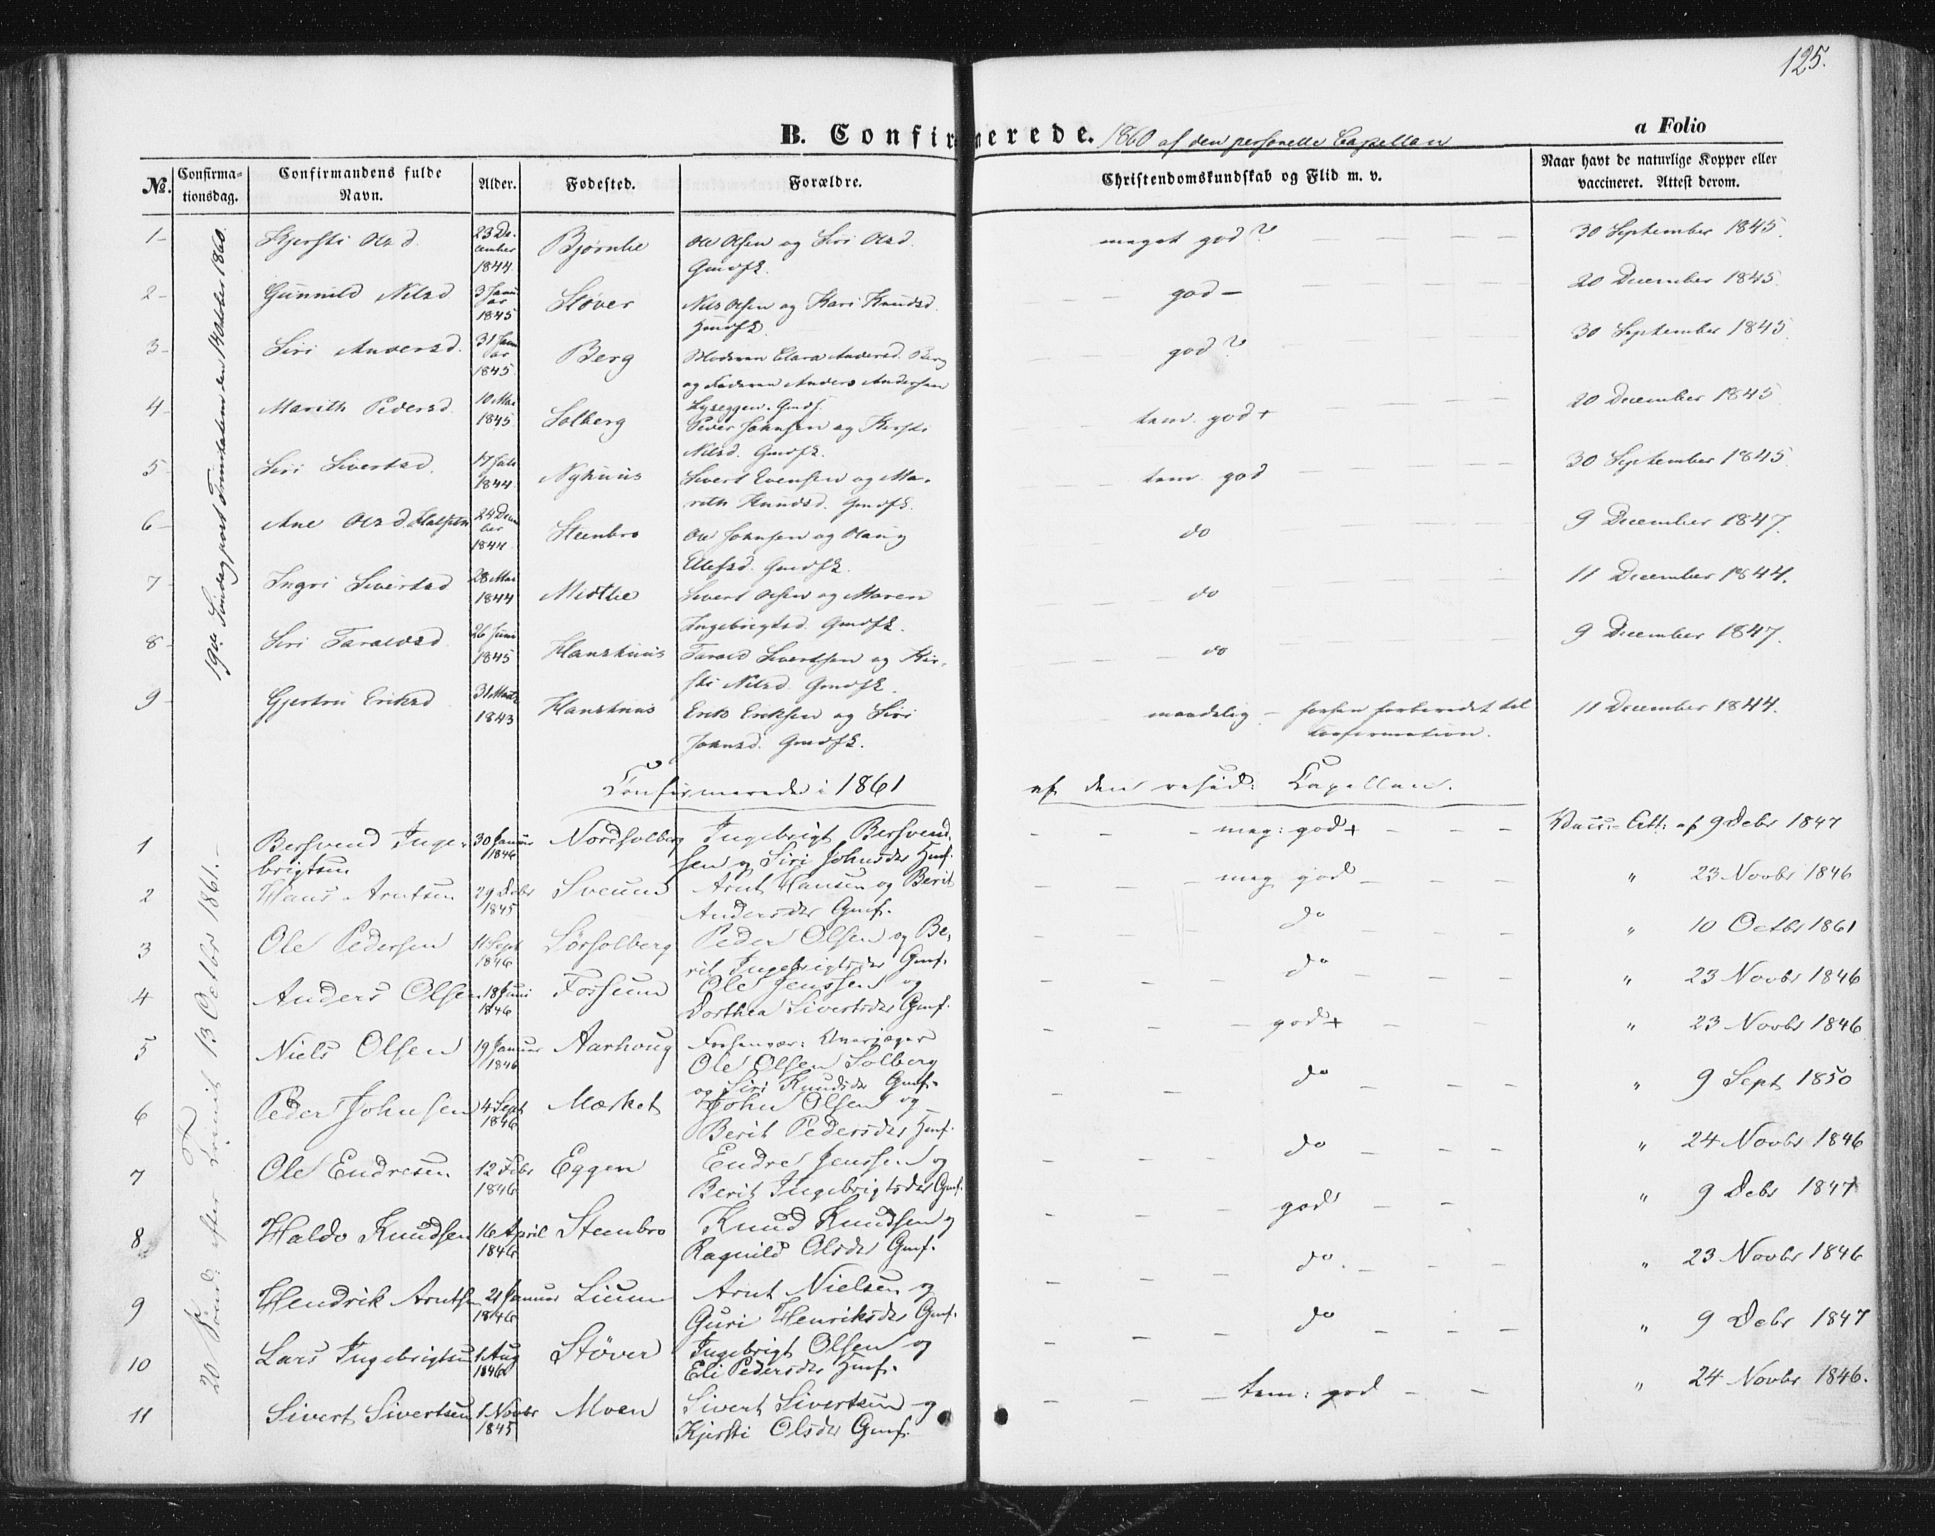 125.
B. Confirmerede. 1860 af den personelle Capellan
a Folio
No. Confirmationsdag. Confirmandens fulde Navn. Alder. Fødested. Forældre. Christendomskundskab og Flid m. v. Naar havt de naturlige Kopper eller vaccineret. Attest derom.
19de Søndag post Trinitatem den 14 October 1860.
1 Kjersti Olsd. 23 December 1844 Bjørnbe Ole Olsen og Siri Olsd. Gmdfk. meget god? 30 September 1845.
2 Gunnild Nilsd 3 Januar 1845 Støver Nils Olsen og Kari Knudsd. Hmdfk. god 20 December 1845
3 Siri Andersd. 31 Januar 1845 Berg Moderen Clara Andersd. Berg
og Faderen Anders Andersen
Lyseggen. Gmdf. god? 30 September 1845
4 Marith Pedersd. 10 Mai 1845 Solberg Peder Johnsen og Kirsti
Nilsd. Gmdfk. tem. god+ 20 December 1845
5 Siri Sivertsd. 17 Juli 1844 Nyhuus Sivert Evensen og Marith Knudsd. Gmdfk. tem. god 30 September 1845.
6 Ane Olsd. 24 December 1844 Steenbro Ole Johnsen og Olaug
Ellefsd. Gmdfk. do 9 December 1847.
7 Ingri Sivertsd 28 Mai 1844 Midtbe Sivert Olsen og Maren
Ingebrigtsd. Gmdfk. do 11 December 1844.
8 Siri Taraldsd. 26 Juni 1845 Hanshuus Tarald Sivertsen og Kirsti Nilsd. Gmdfk. do 9 December 1847.
9 Gjertru Eriksd 31 Marts 1843 Hanshuus Erik Eriksen og Siri
Johnsd. Gmdfk. maadelig - forberedet til
Confirmation. 11 December 1844.
Confirmerede i 1861 af den resid: Capellan.
20 Sønd: efter Trinit 13 Octbr 1861.
1 Bersvend Ingebrigtsen 30 Januar 1846 Nordsolberg Ingebrigt Bersvendsen og Siri Johnsdr Hmf. meg: god+ Vacc: Att: af 9 Debr 1847
2 Hans Arntsen 29 Debr 1845 Sveum Arnt Hansen og Berit
Andersdr Gmf. meg god " 23 Novbr 1846
3 Ole Pedersen 11 Sept 1846 Sørsolberg Peder Olsen og Berit Ingebrigtsdr Gmf. do " 10 Octbr 1861
4 Anders Olsen 18 Juni 1846 Fossum Ole Jenssen og
Dorthea Sivertsdr Gmf. do " 23 Novbr 1846
5 Niels Olsen 19 Januar 1846 Aarhoug
Ole Olsen Solberg
og Siri Knudsdr Gmf. god+ " 23 Novbr 1846
6 Peder Johnsen 4 Sept 1846 Mærket John Olsen og
Berit Pedersdr Hmf. do " 9 Sept 1850
7 Ole Endresen 12 Febr 1846 Eggen Endre Jenssen og
Berit Ingebrigtsdr Gmf. do " 24 Novbr 1846
8 Haldo Knudsen 16 April 1846 Steenbro Knud Knudsen og
Ragnild Olsdr Gmf. god " 9 Debr 1847
9 Hendrik Arntsen 21 Januar 1846 Lium Arnt Nielsen og
Guri Henriksdr Gmf. do. " 23 Novbr 1846
10 Lars Ingebrigtsen 1 Aug 1846 Støver Ingebrigt Olsen og
Eli Pedersdr Hmf. do " 9 Debr 1847
11 Sivert Sivertsen 1 Novbr 1845 Moen Sivert Sivertsen og
Kjersti Olsdr Gmf. tem: god " 24 Novbr 1846.